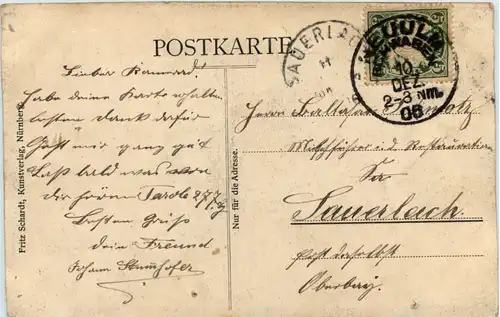 POSTKARTE
SAUERLA
NEU-ULM
10
DEZ.
2-3 Nm.
06
Lieber Kamerad!
Habe deine Karte erhalten
besten Dank dafür
Geht mir ganz gut
Laß bald was von
dir hören Parole 277
Besten Gruß
dein Freund
Johann
Fritz Schardt, Kunstverlag, Nürnberg.
Nur für die Adresse.
Herrn
Restauration
In
Sauerlach
Post daselbst
Oberbay.